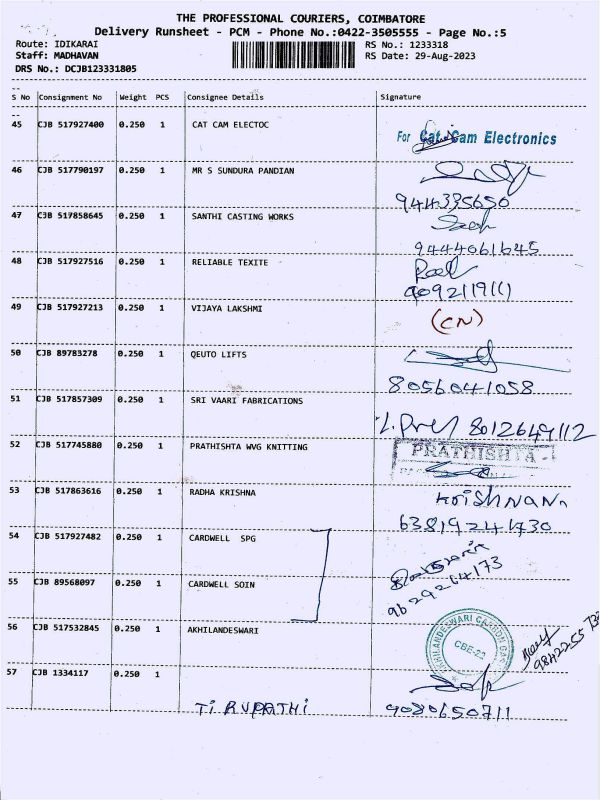 THE PROFESSIONAL COURIERS, COIMBATORE
Delivery Runsheet - PCM - Phone No.:0422-3505555 - Page No.:5
Route: IDIKARAI RS No.: 1233318
Staff: MADHAVAN RS Date: 29-Aug-2023
DRS No.: DCJB123331805
S No Consignment No Weight PCS Consignee Details Signature
45 CJB 517927400 0.250 1 CAT CAM ELECTOC
For Cat Cam Electronics
46 CJB 517790197 0.250 1 MR S SUNDURA PANDIAN
944335650
47 CJB 517858645 0.250 1 SANTHI CASTING WORKS
9444061645
48 CJB 517927516 0.250 1 RELIABLE TEXITE
9092119111
49 CJB 517927213 0.250 1 VIJAYA LAKSHMI
(CN)
50 CJB 89783278 0.250 1 QEUTO LIFTS
8056041058
51 CJB 517857309 0.250 1 SRI VAARI FABRICATIONS
8012649112
52 CJB 517745880 0.250 1 PRATHISHTA WVG KNITTING
PRATHISHTA
53 CJB 517863616 0.250 1 RADHA KRISHNA
KRISHNAN
63819241730
54 CJB 517927482 0.250 1 CARDWELL SPG
55 CJB 89568097 0.250 1 CARDWELL SOIN
9629264173
56 CJB 517532845 0.250 1 AKHILANDESWARI
CBE-22
57 CJB 1334117 0.250 1
TIRUPATHI 9080650711